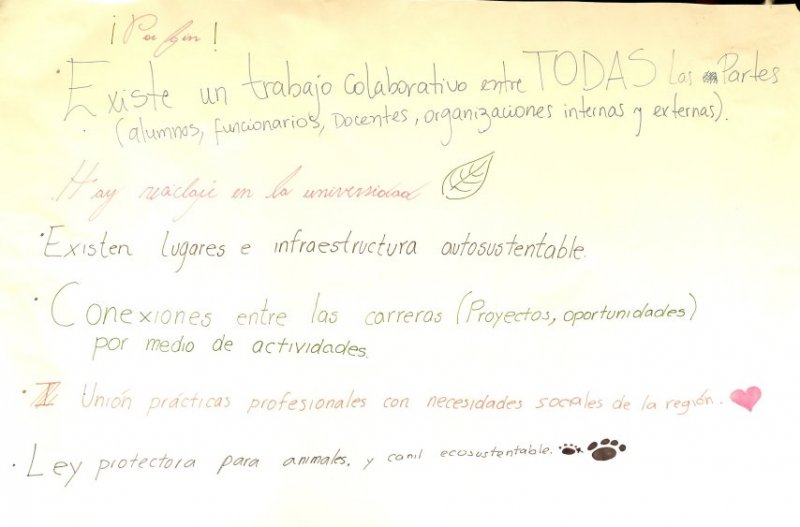 ¡Por fin!
· Existe un trabajo colaborativo entre TODAS las Partes
(alumnos, funcionarios, Docentes, organizaciones internas y externas).
· Hay reciclaje en la universidad
· Existen lugares e infraestructura autosustentable.
· Conexiones entre las carreras (Proyectos, oportunidades)
por medio de actividades.
· Unión prácticas profesionales con necesidades sociales de la región.
· Ley protectora para animales. y canil ecosustentable.